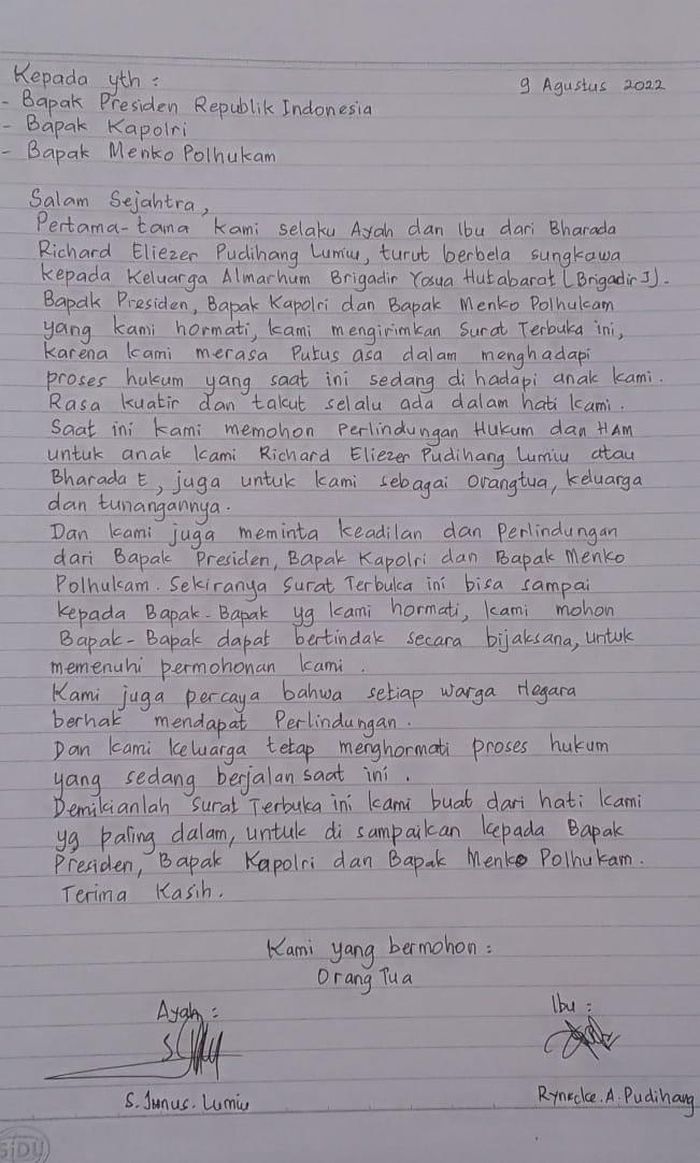 Kepada yth :
9 Agustus 2022
- Bapak Presiden Republik Indonesia
- Bapak Kapolri
- Bapak Menko Polhukam
Salam Sejahtra,
Pertama-tama kami selaku Ayah dan Ibu dari Bharada
Richard Eliezer Pudihang Lumiu, turut berbela sungkawa
kepada Keluarga Almarhum Brigadir Yosua Hutabarat (Brigadir J).
Bapak Presiden, Bapak Kapolri dan Bapak Menko Polhukam
yang kami hormati, kami mengirimkan Surat Terbuka ini,
karena kami merasa Putus asa dalam menghadapi
proses hukum yang saat ini sedang di hadapi anak kami.
Rasa kuatir dan takut selalu ada dalam hati kami.
Saat ini kami memohon Perlindungan Hukum dan HAM
untuk anak kami Richard Eliezer Pudihang Lumiu atau
Bharada E, juga untuk kami sebagai Orangtua, keluarga
dan tunangannya.
Dan kami juga meminta keadilan dan Perlindungan
dari Bapak Presiden, Bapak Kapolri dan Bapak Menko
Polhukam. Sekiranya Surat Terbuka ini bisa sampai
kepada Bapak-Bapak yg kami hormati, kami mohon
Bapak-Bapak dapat bertindak secara bijaksana, untuk
memenuhi permohonan kami.
Kami juga percaya bahwa setiap warga Negara
berhak mendapat Perlindungan.
Dan kami keluarga tetap menghormati proses hukum
yang sedang berjalan saat ini.
Demikianlah Surat Terbuka ini kami buat dari hati kami
yg paling dalam, untuk di sampaikan kepada Bapak
Presiden, Bapak Kapolri dan Bapak Menko Polhukam.
Terima Kasih.
Kami yang bermohon :
Orang Tua
Ayah :
Ibu :
S. Junus. Lumiu
Rynecke. A. Pudihang
SiDU